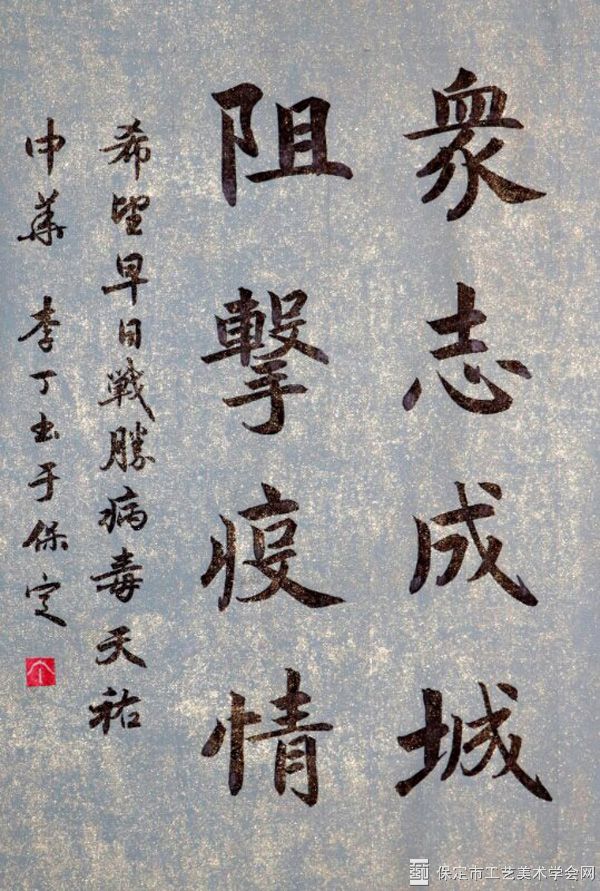 衆志成城
阻擊疫情
希望早日戰勝病毒天祐
中華 李丁書于保定
保定市工艺美术学会网